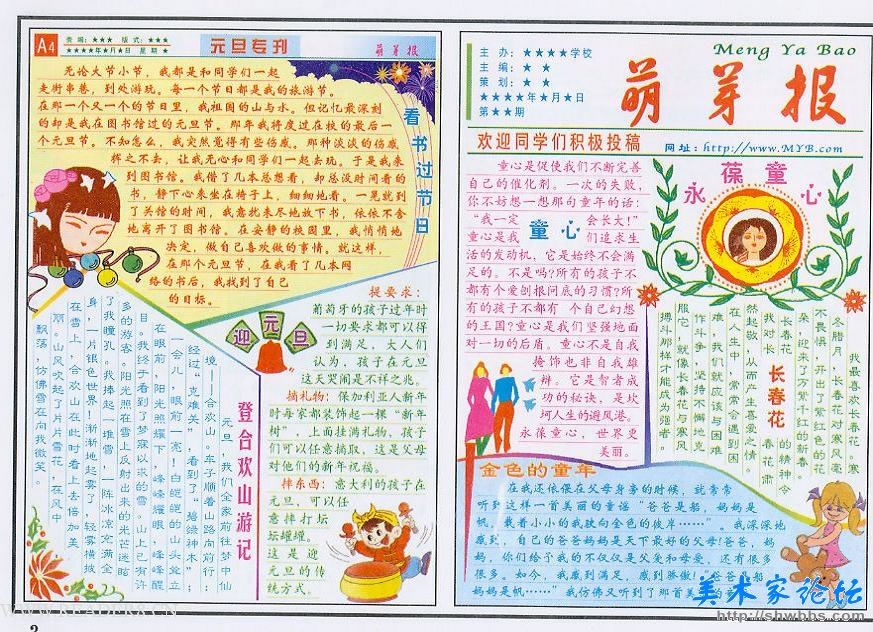 A4
责编：★★★ 版式：★★★
★★★★年★月★日 星期 ★
元旦专刊
萌芽报
无论大节小节，我都是和同学们一起
走街串巷，到处游玩。每一个节日都是我的旅游节。
在那一个又一个的节日里，我祖国的山与水。但记忆最深刻
的却是我在图书馆过的元旦节。那年我将度过在校的最后一
个元旦节。不知怎么，我突然觉得有些伤感。那种淡淡的伤感
挥之不去，让我无心和同学们一起去玩。于是我来
到图书馆。我借了几本总想看，却总没时间看的
书，静下心来坐在椅子上，细细地看。一晃就到
了关馆的时间，我意犹未尽地放下书，依依不舍
地离开了图书馆。在安静的校园里，我悄悄地
决定，做自己喜欢做的事情。就这样，
在那个元旦节，在我看了几本网
络的书后，我找到了自己
的目标。
看书过节日
迎元旦
提要求：
葡萄牙的孩子过年时
一切要求都可以得
到满足，大人们
认为，孩子在元旦
这天哭闹是不祥之兆。
摘礼物：保加利亚人新年
时每家都装饰起一棵“新年
树”，上面挂满礼物，孩子
们可以任意摘取，这是父母
对他们的新年祝福。
摔东西：意大利的孩子在
元旦，可以任
意摔打坛
坛罐罐。
这是迎
元旦的传
统方式。
登合欢山游记
元旦，我们全家前往梦中仙
境——合欢山。车子顺着山路向前行；
经过“克难关”，看到了“碧绿神木”；
一会儿，眼前一亮！白皑皑的山头耸立
在眼前，阳光照耀下，峰峰耀眼，峰峰醒
目。我终于看到了梦寐以求的雪。山上已有许
多的游客。阳光照在雪上反射出来的光芒迷眩
了我瞳孔。我捧起一堆雪，一阵冰凉充满全
身，一片银色世界！渐渐地起雾了，轻雾横披
在雪上，合欢山在此时看上去倍加美
丽。山风吹起了片片雪花，在风中
飘荡，仿佛雪在向我微笑。
主 办：★★★★学校
主 编：★ ★
策 划：★ ★
★★★★年★月★日
第★★期
Meng Ya Bao
萌芽报
欢迎同学们积极投稿
网址：http://www.MYB.com
童心是促使我们不断完善
自己的催化剂。一次的失败，
你不妨想一想那句童年的话：
“我一定 会长大！”
童心是我 们追求生
童心
活的发动机，它是始终不会满
足的。不是吗？所有的孩子不
都有个爱刨根问底的习惯？所
有的孩子不都有 个自己幻想
的王国？童心是我们坚强地面
对一切的后盾。童心不是自我
掩饰也非自我雄
辩。它是智者成
功的秘诀，是坎
坷人生的避风港。
永葆童心，世界更
美丽。
永葆童心
长春花
我最喜欢长春花。寒
冬腊月，长春花对寒风毫
不畏惧，开出了紫红色的花
朵，迎来了万紫千红的新春。
长春花 的精神令
我对长 春花肃
然起敬，从而产生喜爱之情。
在人生中，常常会遇到困
难，我们就应该与困难
作斗争，坚持不懈地克
服它，就像长春花与寒风
搏斗那样才能成为强者。
金色的童年
在我还依偎在父母身旁的时候，就常常
听到这样一首美丽的童谣“爸爸是船，妈妈是
帆，载着小小的我驶向金色的彼岸……”。我深深地
感到，自己的爸爸妈妈是天下最好的父母！爸爸，妈
妈，你们给予我的不仅仅是父爱和母爱，还有很多
很多。如今，我感到满足，感到骄傲！“爸爸是船
妈妈是帆……”我仿佛又听到了那首美
美术家论坛
http://shwbbs.com
2